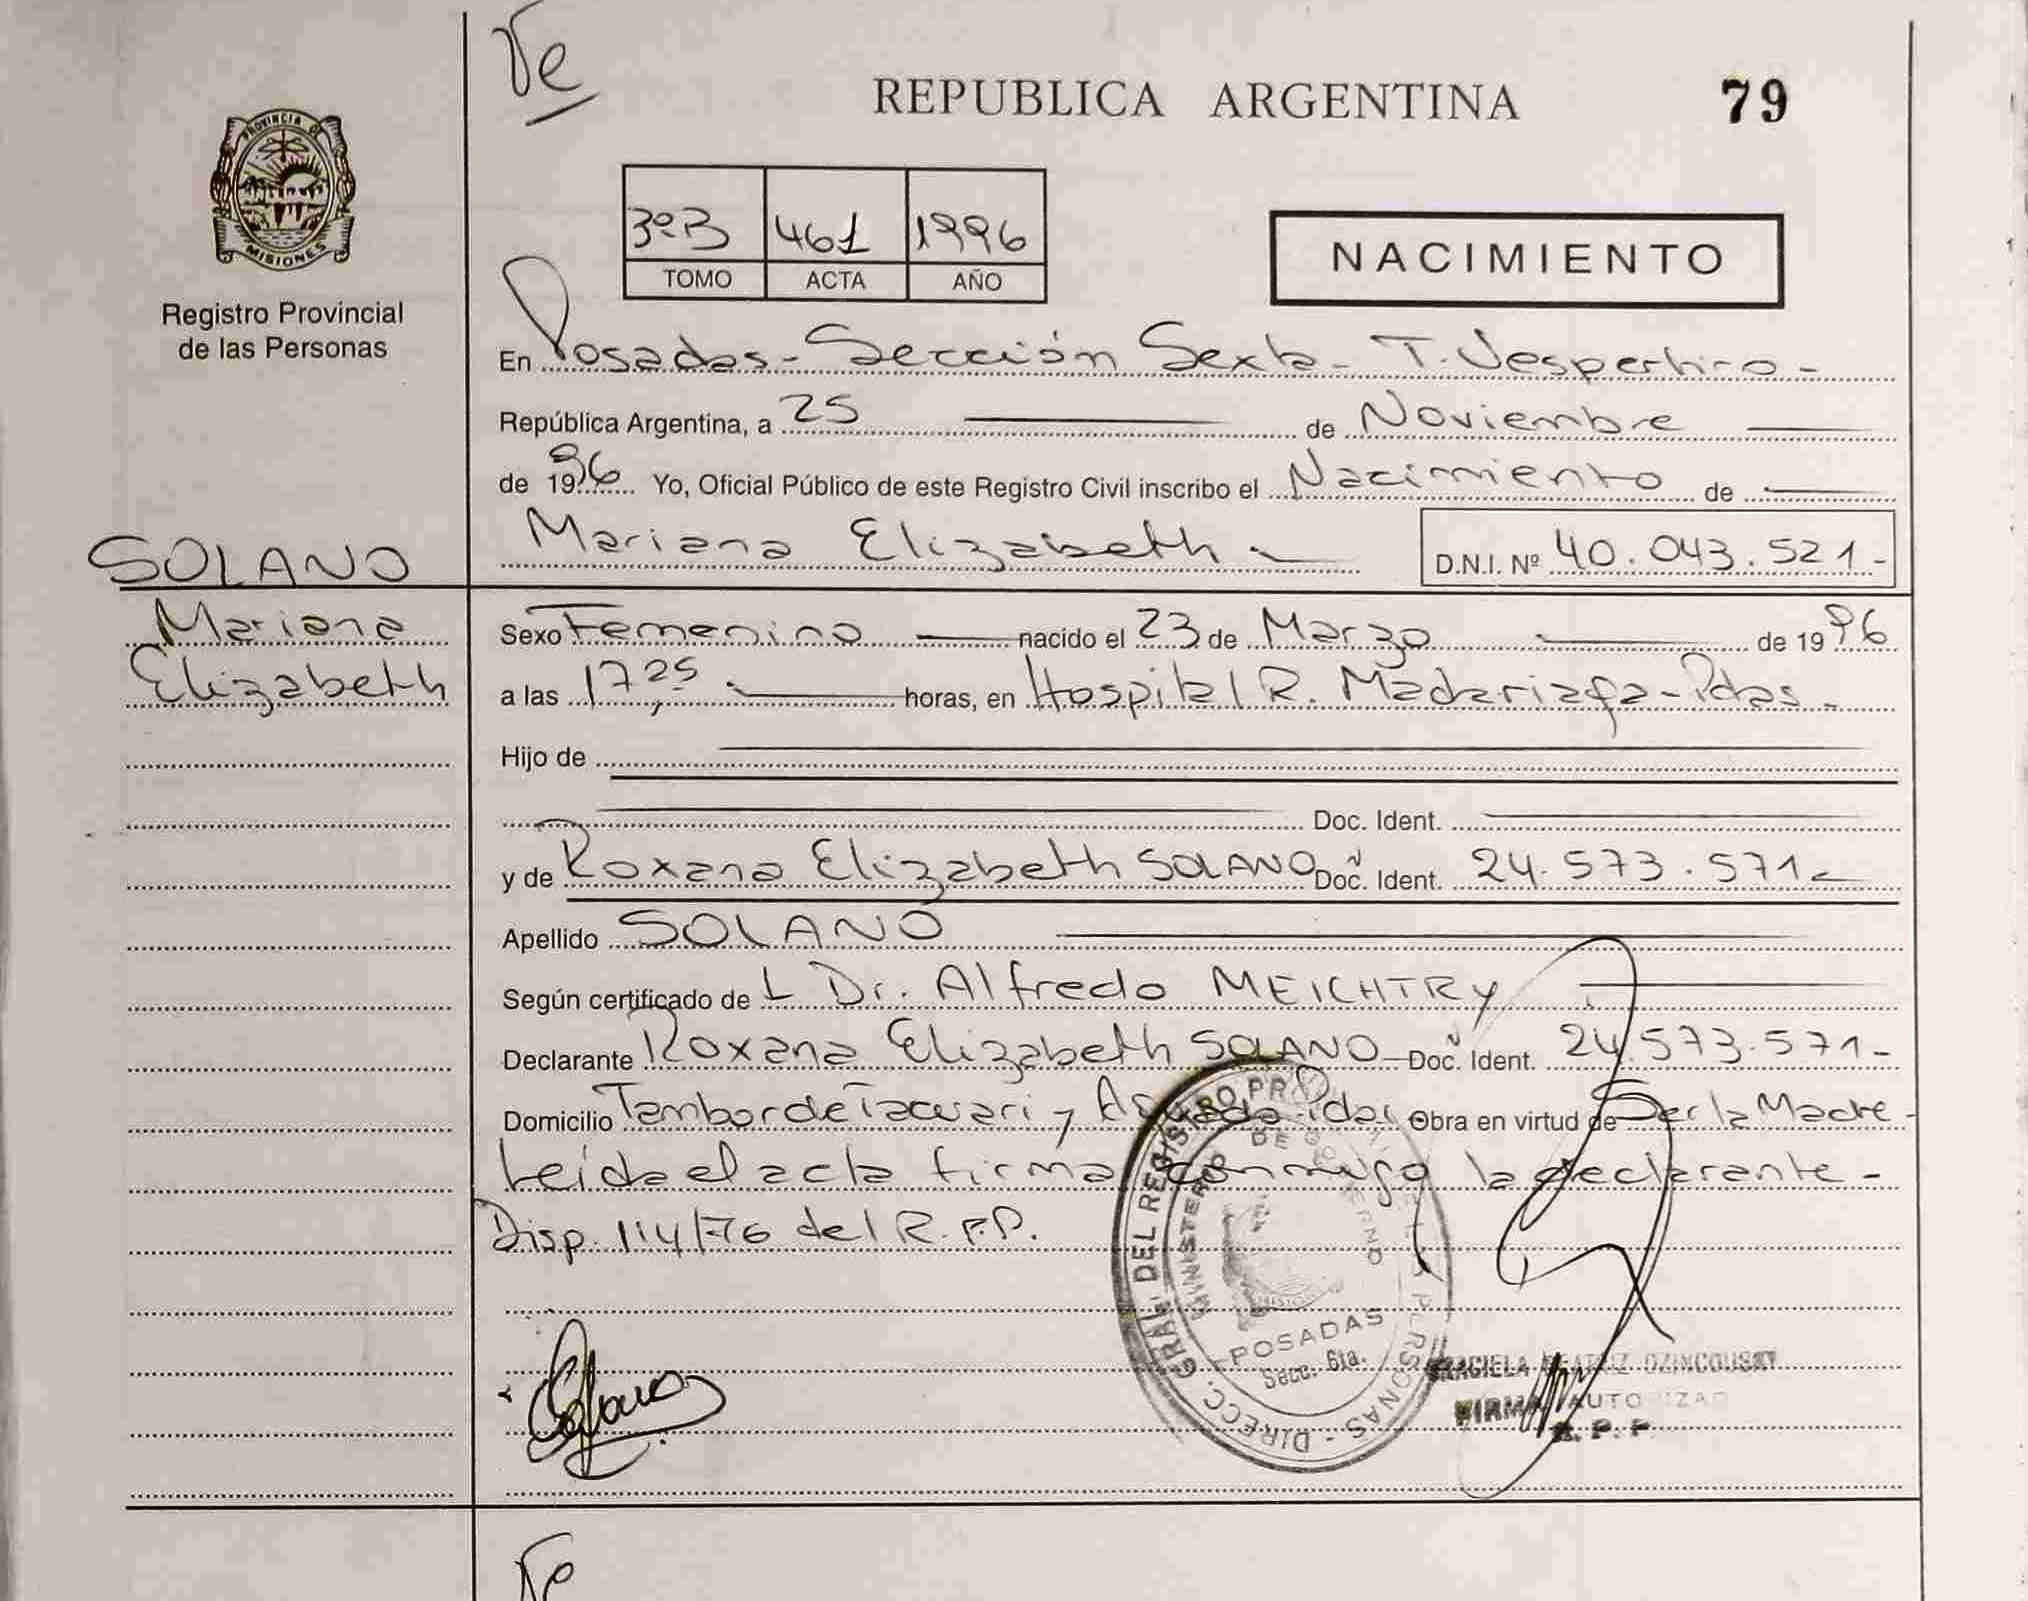 Te
REPUBLICA ARGENTINA
79
PROVINCIA DE
MISIONES
Registro Provincial
de las Personas
3ºB 461 1996
TOMO ACTA AÑO
NACIMIENTO
En Posadas - Sección Sexta - T. Vespertino -
República Argentina, a 25 de Noviembre
de 1996 Yo, Oficial Público de este Registro Civil inscribo el Nacimiento de
Mariana Elizabeth
D.N.I. Nº 40.043.521-
SOLANO
Mariana
Elizabeth
Sexo Femenino nacido el 23 de Marzo de 1996
a las 17,25 horas, en Hospital R. Madariaga - Pdas -
Hijo de
Doc. Ident.
y de Roxana Elizabeth SOLANO Doc. Ident. 24.573.571-
Apellido SOLANO
Según certificado de L Dr. Alfredo MEICHTRY
Declarante Roxana Elizabeth SOLANO Doc. Ident. 24.573.571-
Domicilio Tambor de Tacuari y Obra en virtud de Ser la Madre -
Leida el acta firma conmigo la declarante -
Disp. 114/76 del R.P.P.
DIRECC. GRAL. DEL REGISTRO PERSONAS
MINISTERIO DE GOBIERNO
POSADAS
Secc. 6ta.
Solano
GRACIELA BEATRIZ
FIRMA AUTORIZADA
R. P. P.
Te